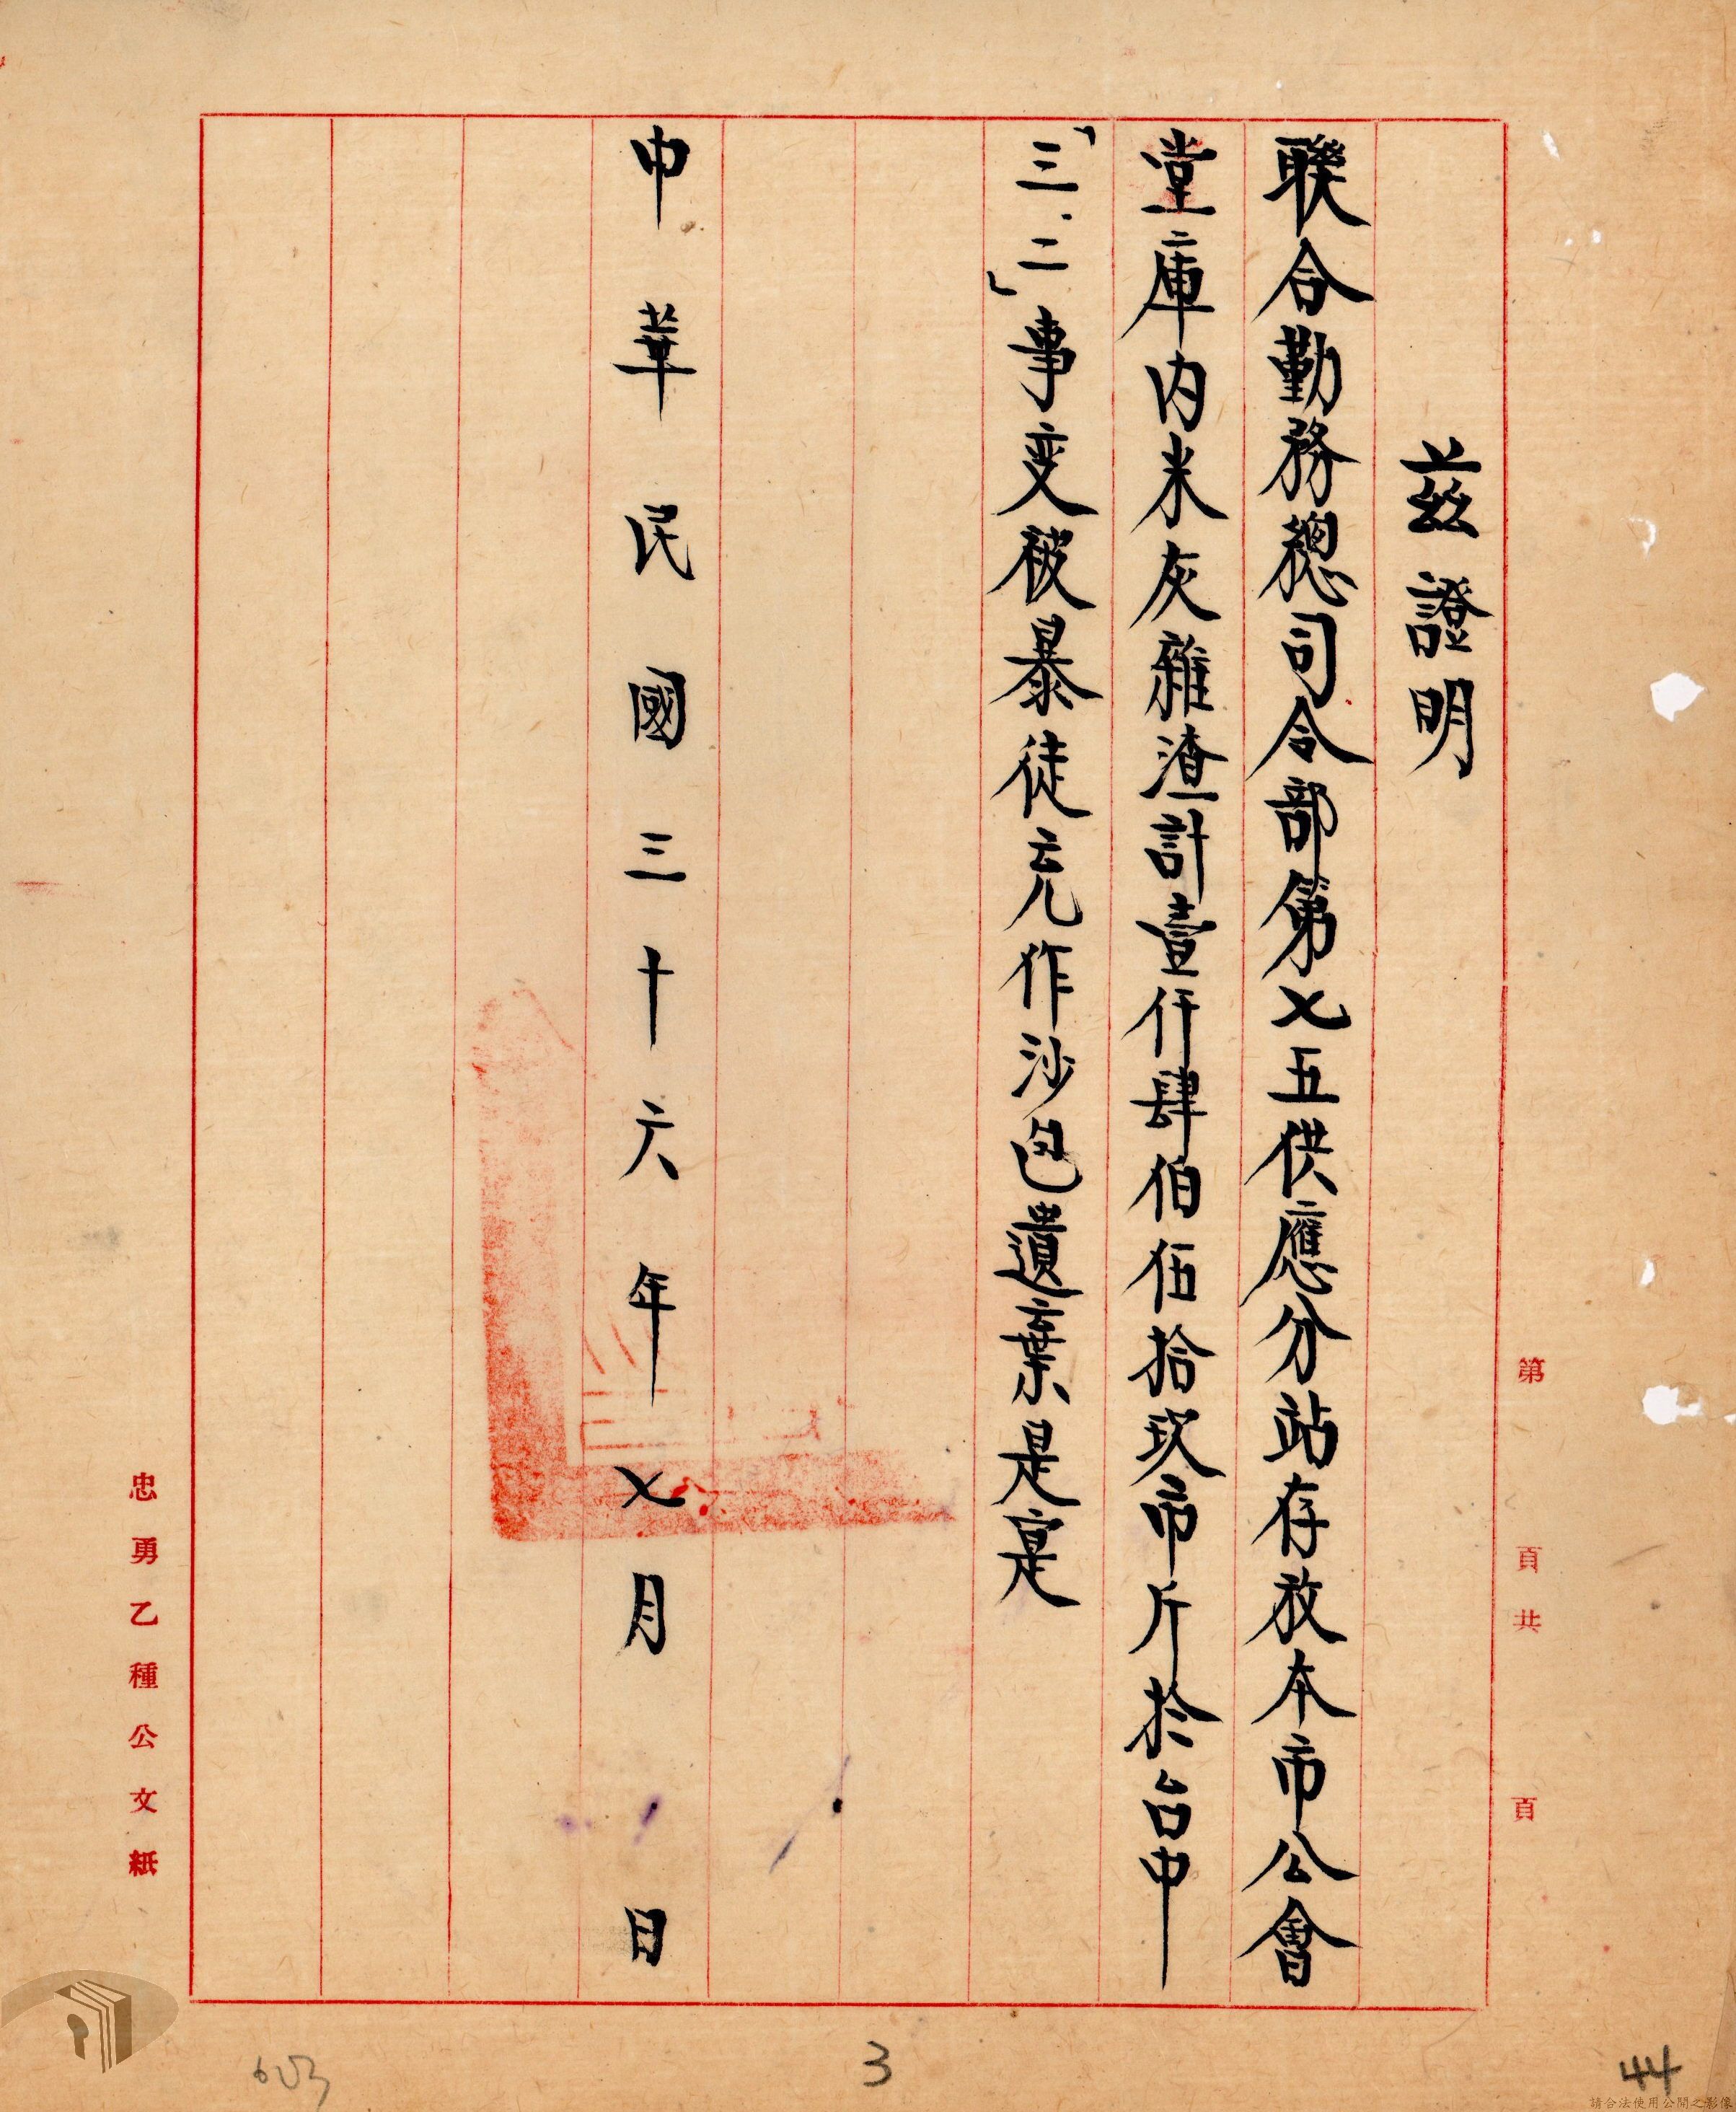 茲證明
聯合勤務總司令部第七五供應分站存放本市公會
堂庫内米灰雜渣計壹仟肆佰伍拾玖市斤於台中
「三·二」事变被暴徒充作沙包遺棄是寔
中華民國三十六年七月　日
第　頁共　頁
忠勇乙種公文紙
3
44
請合法使用公開之影像